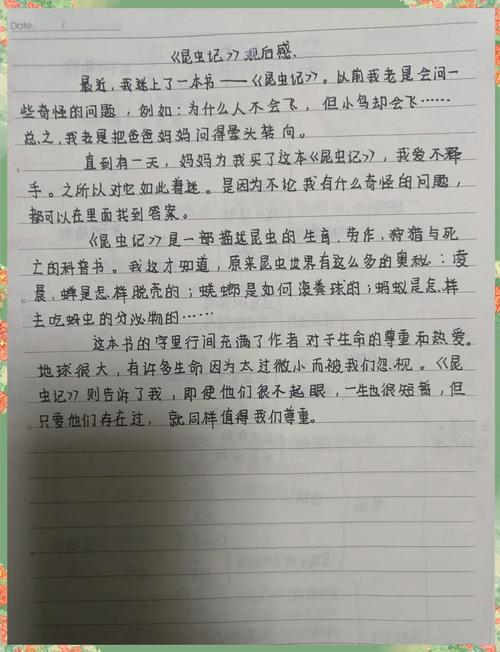 Date: /
《昆虫记》观后感.
最近,我迷上了一本书——《昆虫记》。以前我老是会问一
些奇怪的问题,例如:为什么人不会飞,但小鸟却会飞……
总之,我老是把爸爸妈妈问得晕头转向。
直到有一天,妈妈为我买了这本《昆虫记》,我爱不释
手。之所以对它如此着迷。是因为不论我有什么奇怪的问题,
都可以在里面找到答案。
《昆虫记》是一部描述昆虫的生育.劳作、狩猎与死
亡的科普书。我这才知道,原来昆虫世界有这么多的奥秘:凌
晨,蝉是怎样脱壳的;蜣螂是如何滚粪球的;蚂蚁是怎样
去吃蚜虫的分泌物的……
这本书的字里行间充满了作者对于生命的尊重和热爱。
地球很大,有许多生命因为太过微小而被我们忽视。《昆
虫记》则告诉了我,即使他们很不起眼,一生也很短暂,但
只要他们存在过,就同样值得我们尊重。